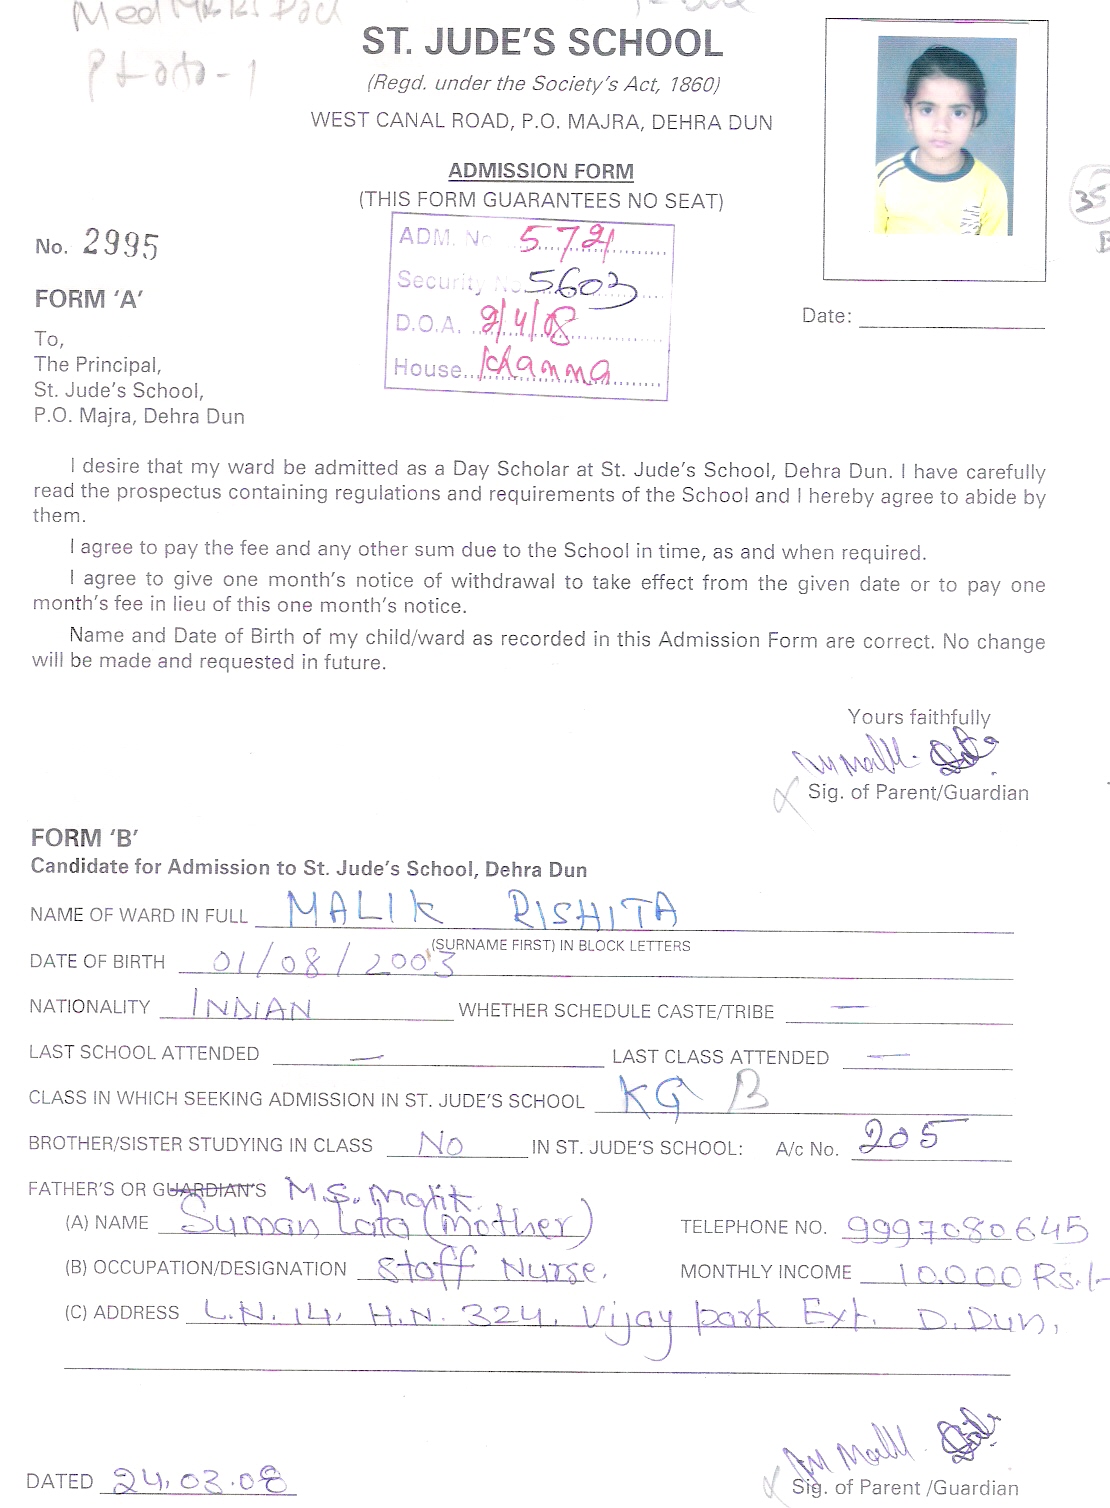 ST. JUDE'S SCHOOL
(Regd. under the Society's Act, 1860)
WEST CANAL ROAD, P.O. MAJRA, DEHRA DUN
ADMISSION FORM
(THIS FORM GUARANTEES NO SEAT)
No. 2995
ADM. No 5721
Security No 5603
D.O.A. 2/4/08
House Khanna
35
Date:
FORM 'A'
To,
The Principal,
St. Jude's School,
P.O. Majra, Dehra Dun
I desire that my ward be admitted as a Day Scholar at St. Jude's School, Dehra Dun. I have carefully
read the prospectus containing regulations and requirements of the School and I hereby agree to abide by
them.
I agree to pay the fee and any other sum due to the School in time, as and when required.
I agree to give one month's notice of withdrawal to take effect from the given date or to pay one
month's fee in lieu of this one month's notice.
Name and Date of Birth of my child/ward as recorded in this Admission Form are correct. No change
will be made and requested in future.
Yours faithfully
Sig. of Parent/Guardian
FORM 'B'
Candidate for Admission to St. Jude's School, Dehra Dun
NAME OF WARD IN FULL MALIK RISHITA
(SURNAME FIRST) IN BLOCK LETTERS
DATE OF BIRTH 01/08/2003
NATIONALITY INDIAN WHETHER SCHEDULE CASTE/TRIBE —
LAST SCHOOL ATTENDED — LAST CLASS ATTENDED —
CLASS IN WHICH SEEKING ADMISSION IN ST. JUDE'S SCHOOL KG B
BROTHER/SISTER STUDYING IN CLASS No IN ST. JUDE'S SCHOOL: A/c No. 205
FATHER'S OR GUARDIAN'S M.S. Malik.
(A) NAME Suman Lata (Mother) TELEPHONE NO. 9997080645
(B) OCCUPATION/DESIGNATION Staff Nurse. MONTHLY INCOME 10.000 Rs./-
(C) ADDRESS L.N. 14, H.N. 324, Vijay park Ext. D.Dun,
DATED 24.03.08
Sig. of Parent /Guardian